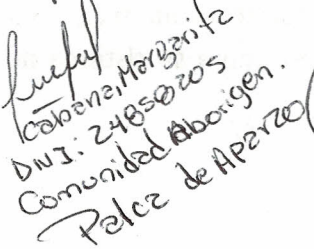 Cabana, Margarita
DNI: 24858205
Comunidad Aborigen.
Palca de Aparzo